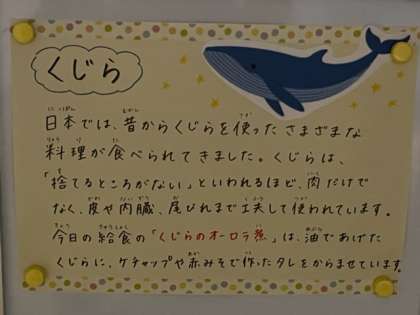 くじら
日本では、昔からくじらを使ったさまざまな
料理が食べられてきました。くじらは、
「捨てるところがない」といわれるほど、肉だけで
なく、皮や内臓、尾びれまで工夫して使われています。
今日の給食の「くじらのオーロラ煮」は、油であげた
くじらに、ケチャップや赤みそで作ったタレをからませています。